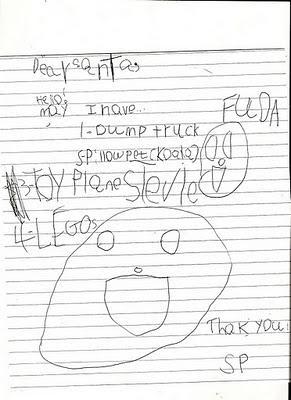 Dear santa,
Hello!
may I have...
FUDA
1-Dump truck
SP:llowpet (Koala)
3-toy plane
4-LEGOs
Thak you!
SP